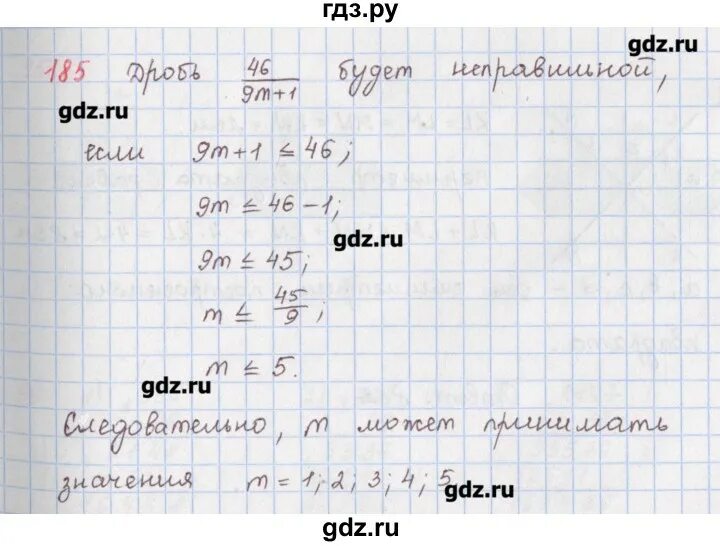 гдз.ру
gdz.ru
185 Дробь 46/(9m+1) будет неправильной,
gdz.ru
если 9m+1 ≤ 46;
9m ≤ 46-1;
gdz.ru
9m ≤ 45;
m ≤ 45/9;
m ≤ 5.
gdz.ru
Следовательно, m может принимать
значения m = 1; 2; 3; 4; 5
gdz.ru
gdz.ru